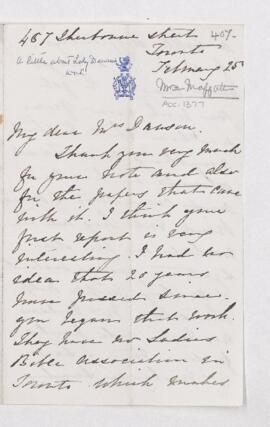 467 Sherbourne street 467.
Toronto
February 25
A little about Lady Dawson's work
Mrs Moffatt
ACC-1377
My dear Mrs Dawson.
Thank you very much
for your note and also
for the papers that came
with it. I think your
first report is very
interesting. I had no
idea that 20 years
have passed since
you began that work.
They have no Ladies
Bible Association in
Toronto which makes